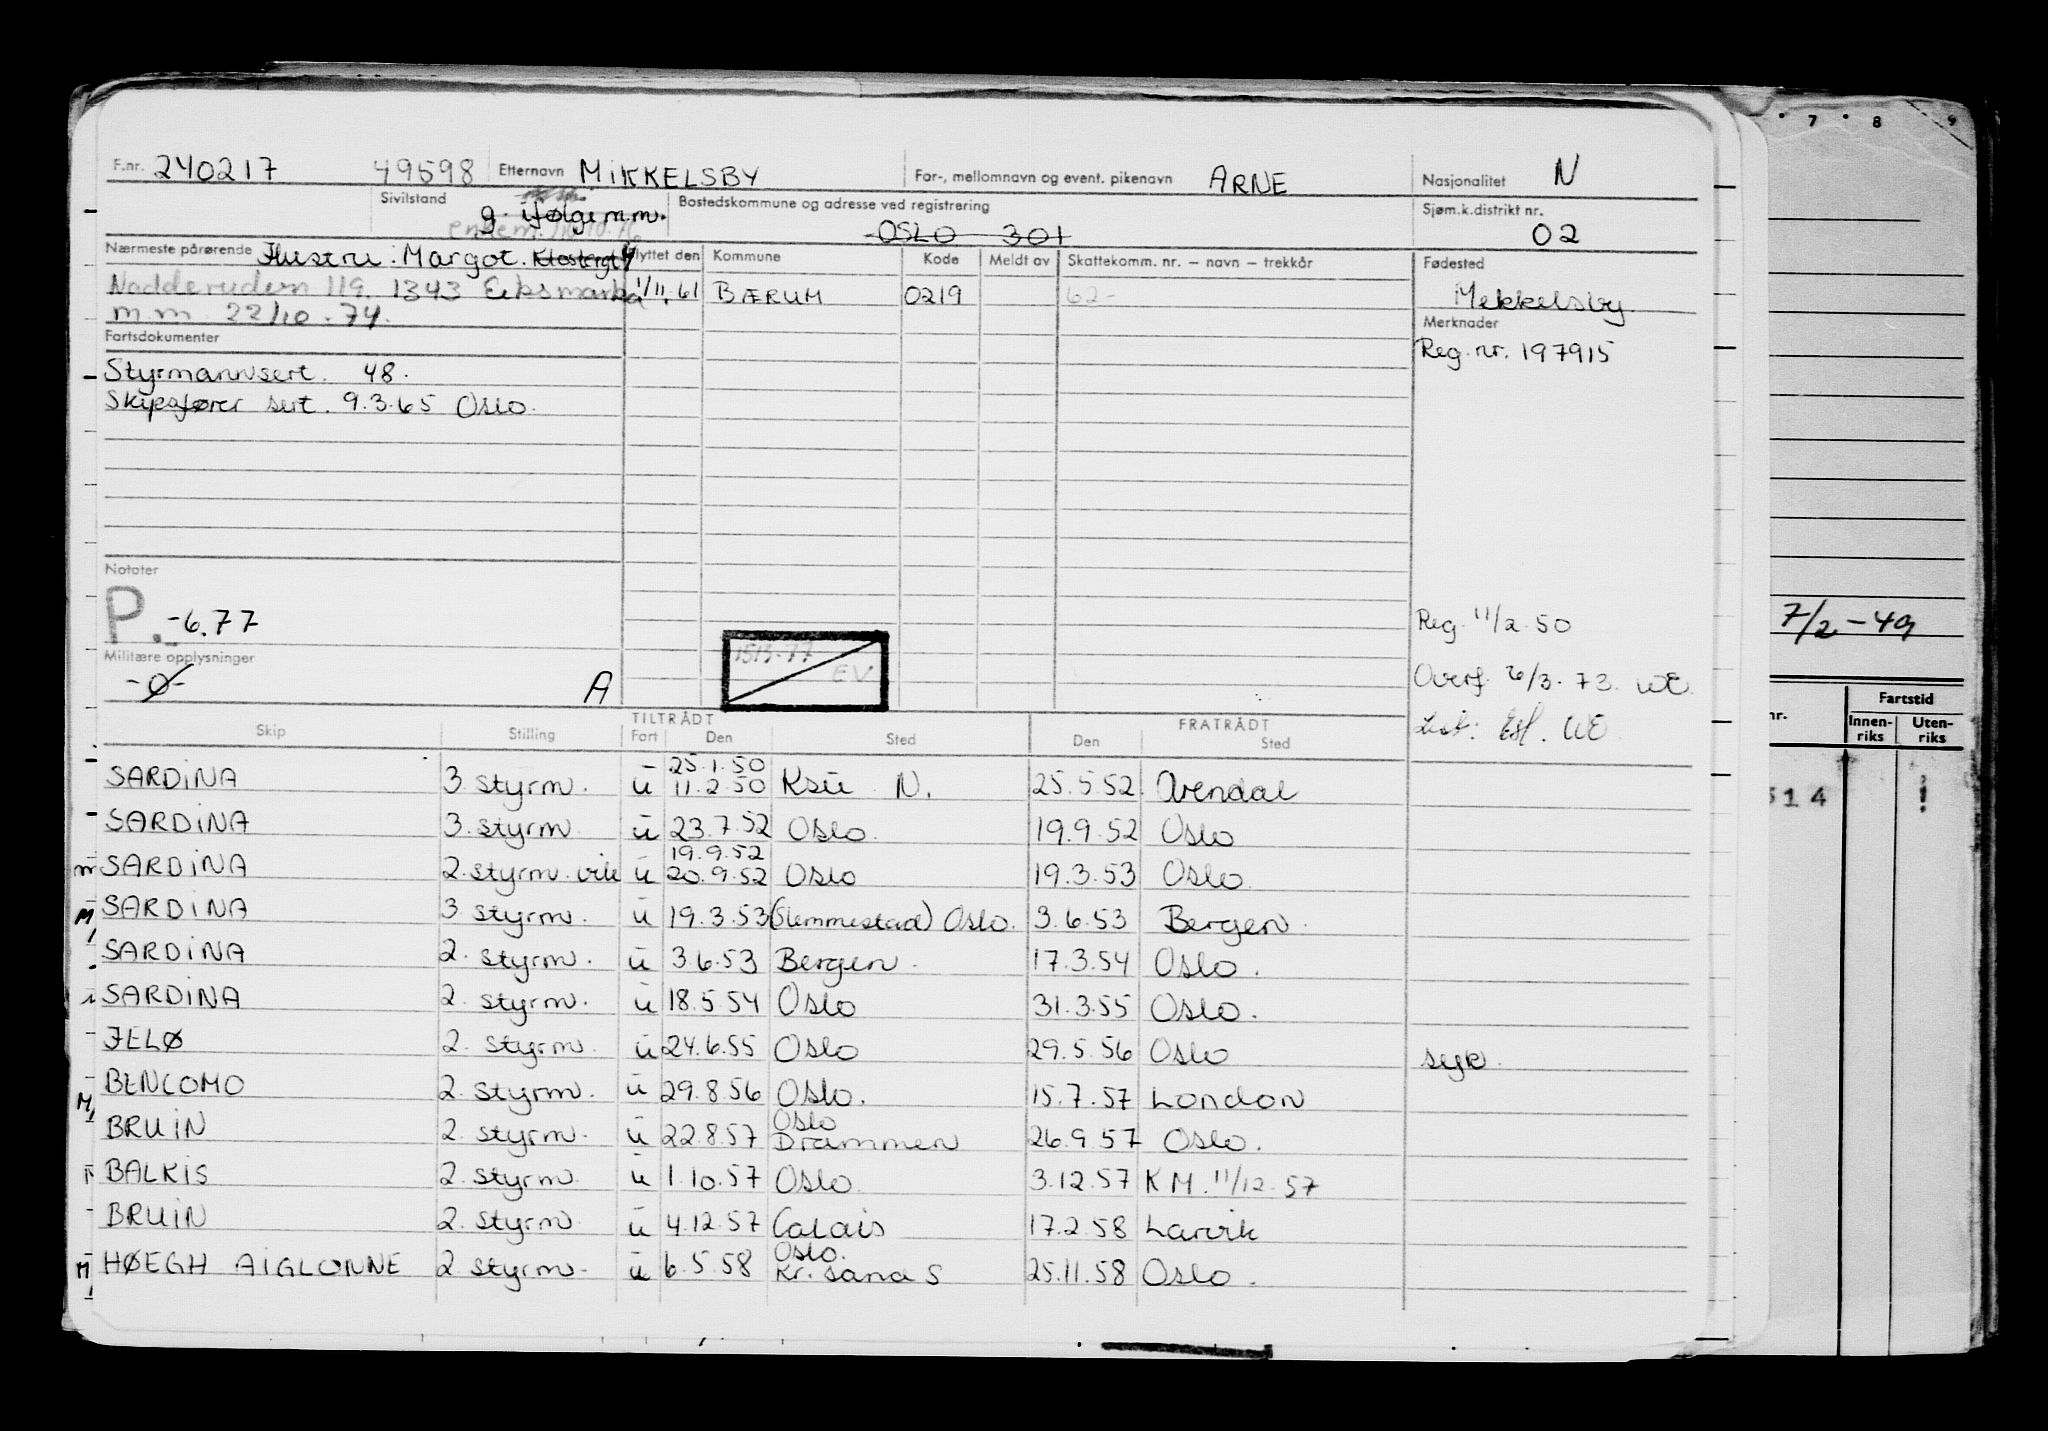 F.nr. 240217 49598 Etternavn MIKKELSBY For-, mellomnavn og event. pikenavn ARNE Nasjonalitet N
Sivilstand g. ifølge m.m. Bostedskommune og adresse ved registrering OSLO 301 Sjøm.k.distrikt nr. 02
Nærmeste pårørende Hustru: Margot. Klostergt 4 Flyttet den Kommune Kode Meldt av Skattekomm. nr. — navn — trekkår Fødested
Nadderudvn 119. 1343 Eiksmarka 1/11.61 BÆRUM 0219 62- Mikkelsby
m.m. 22/10-74. Merknader
Fartsdokumenter Reg.nr. 197915
Styrmannsert. 48.
Skipsfører sert. 9.3.65 Oslo.
Notater
P. -6.77 Reg. 11/2.50
15/3-77 EV
Militære opplysninger
-0- A Overf. 6/3.73. WE
List: Esf. WE
Skip Stilling TILTRÅDT Fart Den Sted FRATRÅDT Den Sted
25.1.50
SARDINA 3 styrm. u 11.2.50 Ksu N. 25.5.52 Arendal
SARDINA 3. styrm u 23.7.52 Oslo. 19.9.52 Oslo
19.9.52
SARDINA 2. styrm. vik u 20.9.52 Oslo 19.3.53 Oslo
SARDINA 3 styrm. u 19.3.53 (Slemmestad) Oslo. 3.6.53 Bergen.
SARDINA 2. styrm. u 3.6.53 Bergen. 17.3.54 Oslo.
SARDINA 2. styrm. u 18.5.54 Oslo 31.3.55 Oslo.
JELØ 2. styrm. u 24.6.55 Oslo 29.5.56 Oslo syk.
BENCOMO 2. styrm. u 29.8.56 Oslo. 15.7.57 London
Oslo
BRUIN 2. styrm. u 22.8.57 Drammen 26.9.57 Oslo.
BALKIS 2. styrm. u 1.10.57 Oslo 3.12.57 KM. 11/12.57
BRUIN 2. styrm. u 4.12.57 Calais 17.2.58 Larvik
Oslo.
HØEGH AIGLONNE 2. styrm. u 6.5.58 Kr.sand S 25.11.58 Oslo.
7 8 9
7/2-49
Fartstid
nr. Innen-riks Uten-riks
514 !